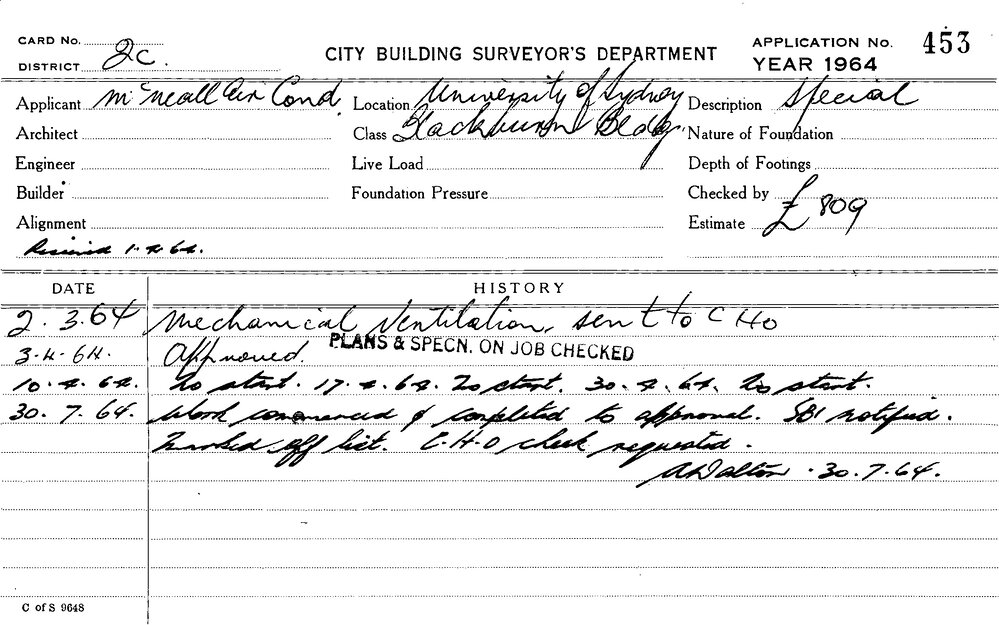 CARD No.
DISTRICT 2c.
CITY BUILDING SURVEYOR'S DEPARTMENT
APPLICATION No. 453
YEAR 1964
Applicant McNeall Air Cond. Location University of Sydney Description Special
Architect Class Blackburn Bldg. Nature of Foundation
Engineer Live Load Depth of Footings
Builder Foundation Pressure Checked by
Alignment Estimate £809
Received 1.4.64.
DATE HISTORY
2.3.64 Mechanical Ventilation, sent to C Ho
3.4.64. Approved. PLANS & SPECN. ON JOB CHECKED
10.4.64. To start. 17.4.64. To start. 30.4.64. To start.
30.7.64. Work commenced & completed to approval. SBI notified.
Marked off list. C.H.O check requested.
30.7.64.
C of S 9648